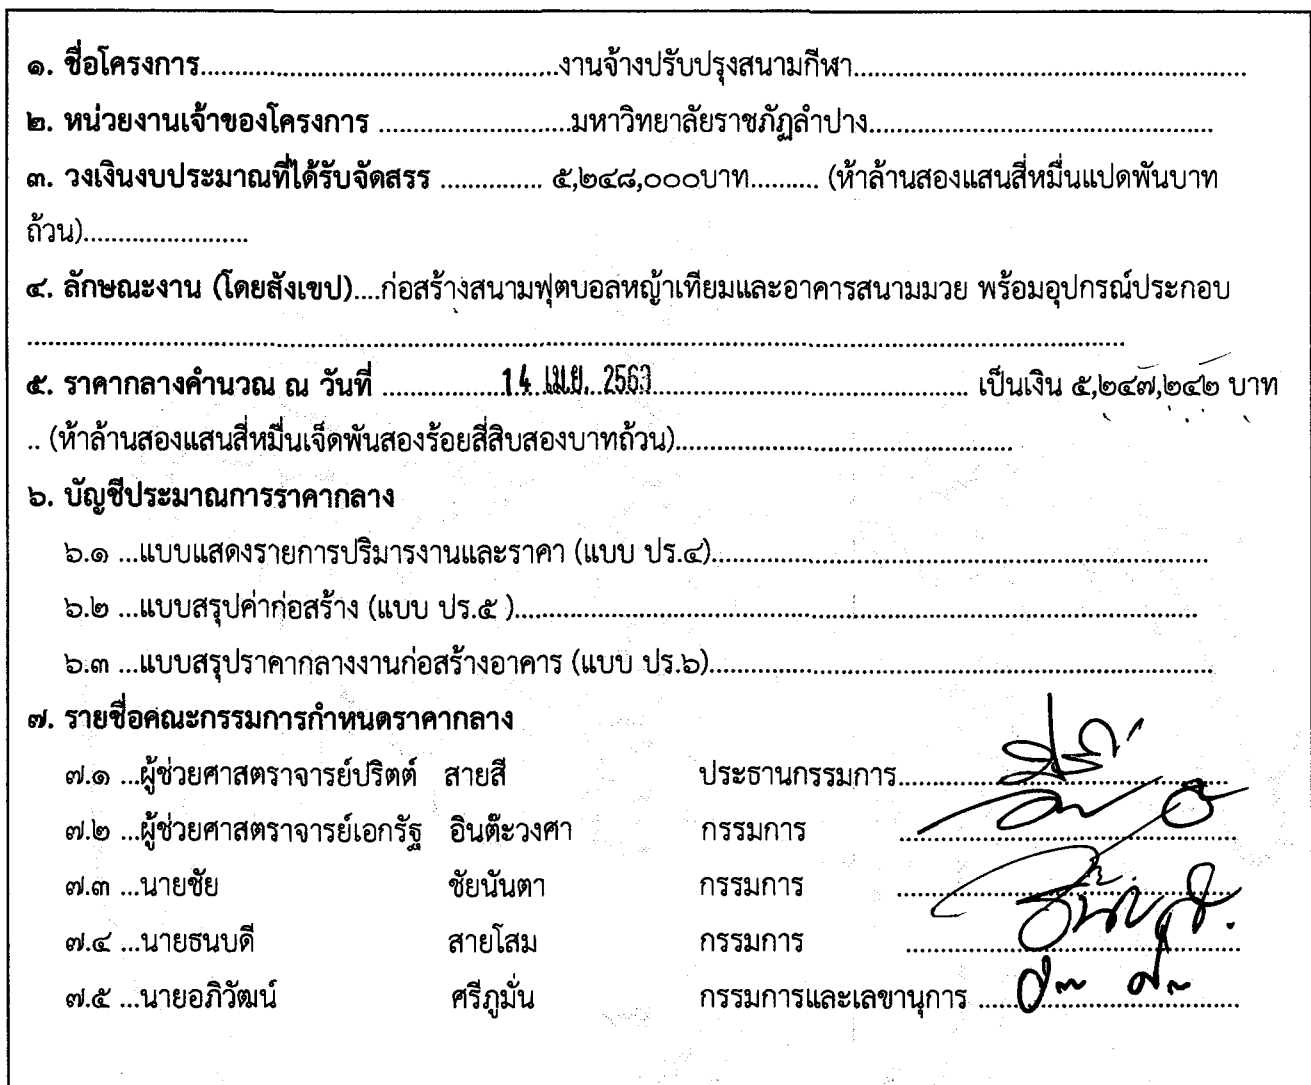 ๑. ชื่อโครงการ....................................................งานจ้างปรับปรุงสนามกีฬา.........................................................
๒. หน่วยงานเจ้าของโครงการ ............................มหาวิทยาลัยราชภัฏลำปาง..................................................
๓. วงเงินงบประมาณที่ได้รับจัดสรร ............... ๕,๒๔๘,๐๐๐บาท.......... (ห้าล้านสองแสนสี่หมื่นแปดพันบาท
ถ้วน)........................
๔. ลักษณะงาน (โดยสังเขป)....ก่อสร้างสนามฟุตบอลหญ้าเทียมและอาคารสนามมวย พร้อมอุปกรณ์ประกอบ
................................................................................................................................................................
๕. ราคากลางคำนวณ ณ วันที่ .................14 เม.ย. 2563.............................................. เป็นเงิน ๕,๒๔๗,๒๔๒ บาท
.. (ห้าล้านสองแสนสี่หมื่นเจ็ดพันสองร้อยสี่สิบสองบาทถ้วน).................................................
๖. บัญชีประมาณการราคากลาง
๖.๑ ...แบบแสดงรายการปริมารงานและราคา (แบบ ปร.๔)........................................................................
๖.๒ ...แบบสรุปค่าก่อสร้าง (แบบ ปร.๕ )...................................................................................................
๖.๓ ...แบบสรุปราคากลางงานก่อสร้างอาคาร (แบบ ปร.๖).........................................................................
๗. รายชื่อคณะกรรมการกำหนดราคากลาง
๗.๑ ...ผู้ช่วยศาสตราจารย์ปริตต์ สายสี ประธานกรรมการ................................................
๗.๒ ...ผู้ช่วยศาสตราจารย์เอกรัฐ อินต๊ะวงศา กรรมการ ................................................
๗.๓ ...นายชัย ชัยนันตา กรรมการ ................................................
๗.๔ ...นายธนบดี สายโสม กรรมการ ................................................
๗.๕ ...นายอภิวัฒน์ ศรีภูมั่น กรรมการและเลขานุการ ......................................